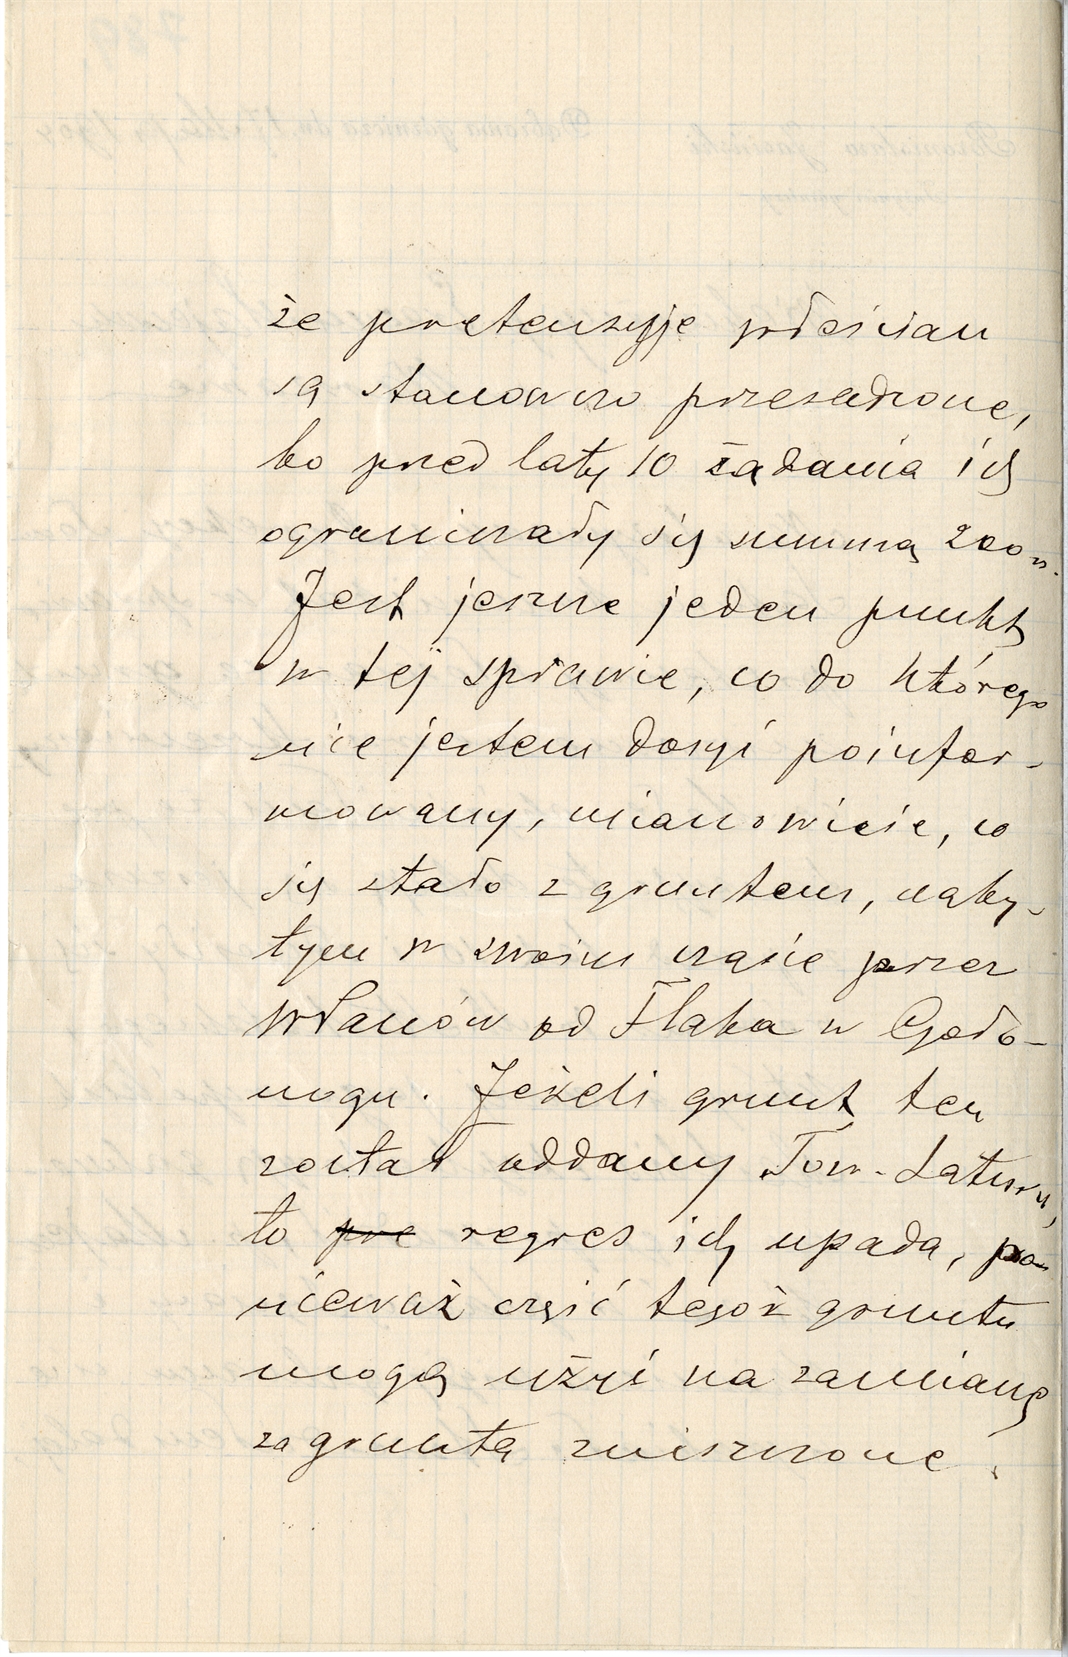 że pretensyje włościan
są stanowczo przesadzone,
bo przed laty 10 żądania ich
ograniczały się summą 200
Jest jeszcze jeden punkt
w tej sprawie, co do którego
nie jestem dosyć poinfor-
mowany, mianowicie, co
się stało z gruntem, naby-
tym w swoim czasie przez
od Flaka w Goło-
nogu. Jeżeli grunt ten
został oddany Tow. Saturn,
to pre regres ich upada, po-
nieważ część tegoż gruntu
mogą użyć na zamianę
za grunta zniszczone.